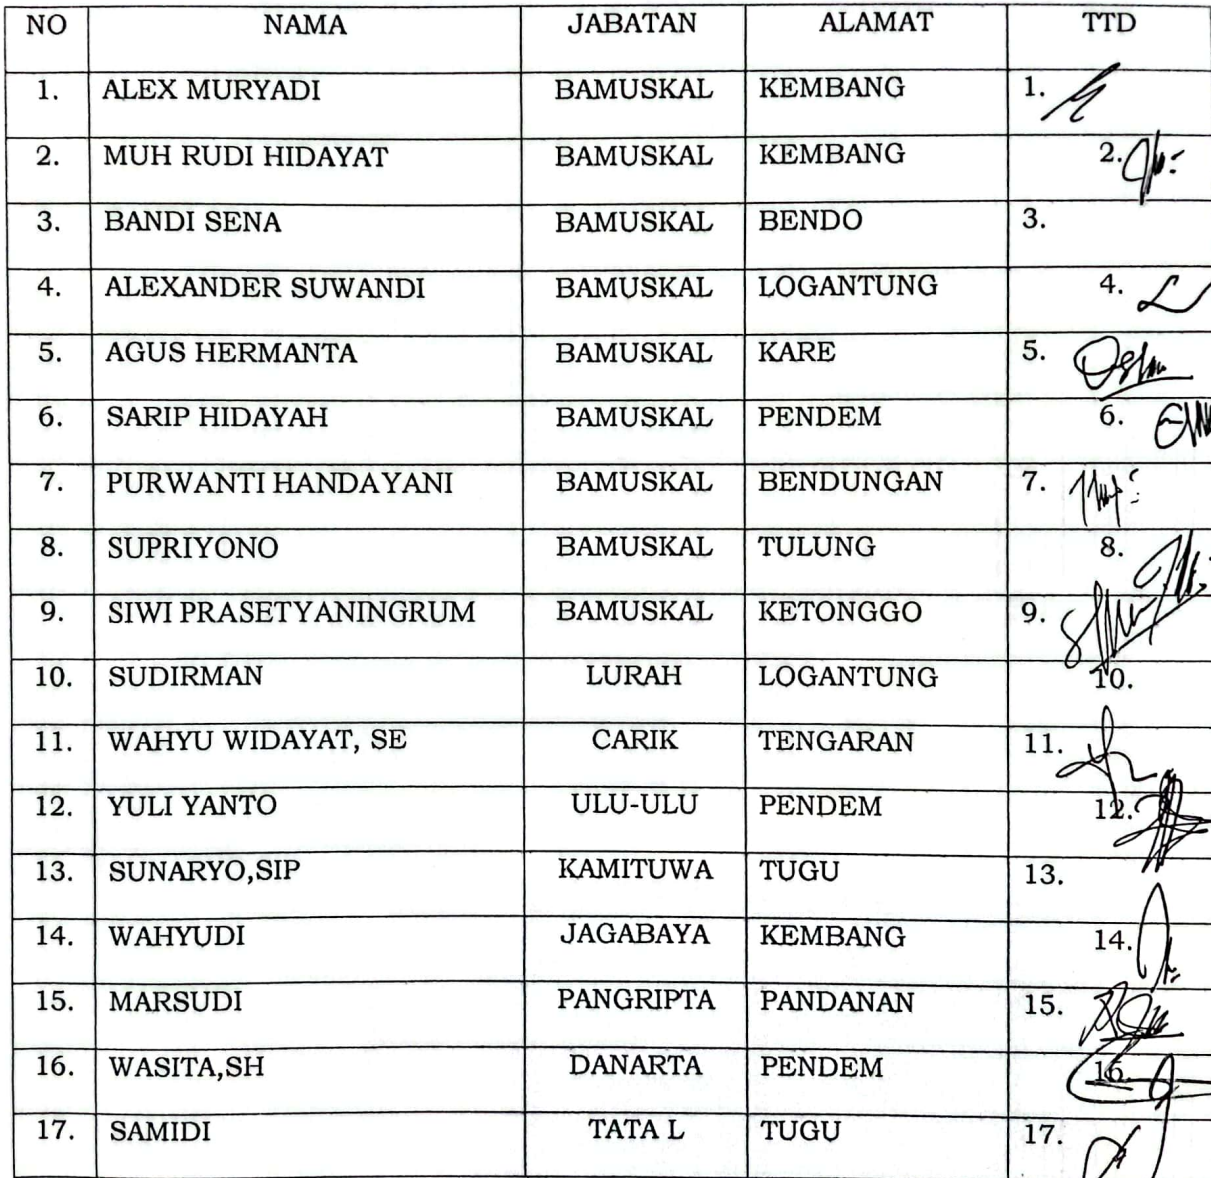 NO NAMA JABATAN ALAMAT TTD
1. ALEX MURYADI BAMUSKAL KEMBANG 1.
2. MUH RUDI HIDAYAT BAMUSKAL KEMBANG 2.
3. BANDI SENA BAMUSKAL BENDO 3.
4. ALEXANDER SUWANDI BAMUSKAL LOGANTUNG 4.
5. AGUS HERMANTA BAMUSKAL KARE 5.
6. SARIP HIDAYAH BAMUSKAL PENDEM 6.
7. PURWANTI HANDAYANI BAMUSKAL BENDUNGAN 7.
8. SUPRIYONO BAMUSKAL TULUNG 8.
9. SIWI PRASETYANINGRUM BAMUSKAL KETONGGO 9.
10. SUDIRMAN LURAH LOGANTUNG 10.
11. WAHYU WIDAYAT, SE CARIK TENGARAN 11.
12. YULI YANTO ULU-ULU PENDEM 12.
13. SUNARYO,SIP KAMITUWA TUGU 13.
14. WAHYUDI JAGABAYA KEMBANG 14.
15. MARSUDI PANGRIPTA PANDANAN 15.
16. WASITA,SH DANARTA PENDEM 16.
17. SAMIDI TATA L TUGU 17.